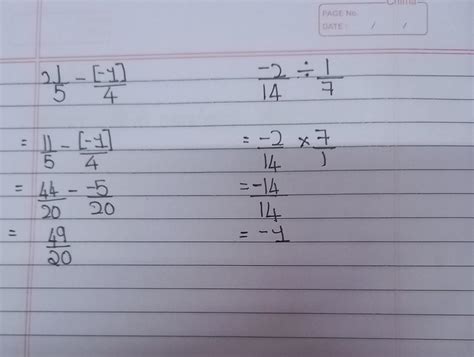 China
PAGE No.
DATE : / /
2 1/5 - [-1]/4
= 11/5 - [-1]/4
= 44/20 - -5/20
= 49/20
-2/14 ÷ 1/7
= -2/14 × 7/1
= -14/14
= -1